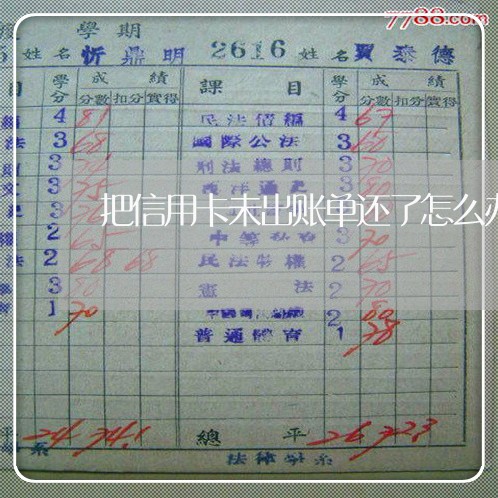 7788.com
學期
5 姓名 忻鼎明 2616 姓名 賈泰德
目 學分 成績 分數 扣分 實得 課目 學分 成績 分數 扣分 實得
4 81 民法債編 4 67
法 3 68 國際公法 3 60
3 刑法總則 3 70
3 75 西洋通史 3 80
把信用卡未出账单还了怎么办
2 65 3 70
法 2 68 68 民法物權 2 65
3 80 憲法 2 70
1 70 2 80
普通體育 1 78
平 24 74.1 總平 26 72.3
系 法律學系